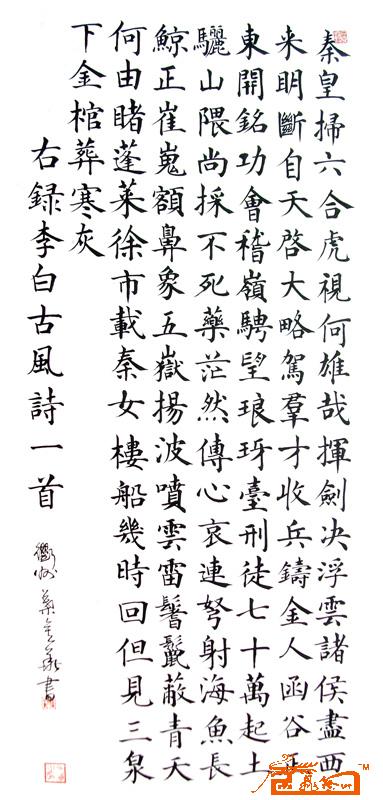 秦皇掃六合虎視何雄哉揮劍决浮雲諸侯盡西
来明斷自天啓大略駕羣才收兵鑄金人函谷正
東開銘功會稽嶺騁望琅玡臺刑徒七十萬起土
驪山隈尚採不死藥茫然傳心哀連弩射海魚長
鯨正崔嵬額鼻象五嶽揚波噴雲雷鬐鬣蔽青天
何由睹蓬萊徐市載秦女樓船幾時回但見三泉
下金棺葬寒灰
右録李白古風詩一首
書